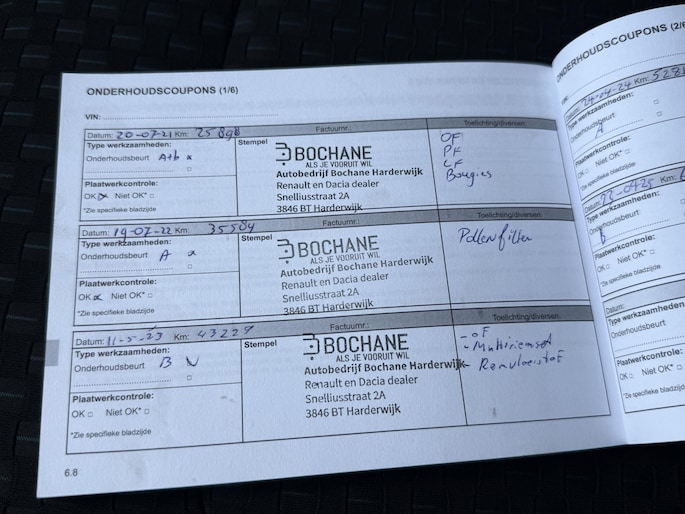 ONDERHOUDSCOUPONS (1/6)
VIN:
Datum: 20-07-21 Km: 25898
Factuurnr.:
Toelichting/diversen:
Type werkzaamheden:
Onderhoudsbeurt A+b x
Plaatwerkcontrole:
OK x Niet OK* □
*Zie specifieke bladzijde
Stempel
BOCHANE
ALS JE VOORUIT WIL
Autobedrijf Bochane Harderwijk
Renault en Dacia dealer
Snelliusstraat 2A
3846 BT Harderwijk
OF
PF
LF
Bougies
Datum: 19-07-22 Km: 35584
Factuurnr.:
Toelichting/diversen:
Type werkzaamheden:
Onderhoudsbeurt A x
Plaatwerkcontrole:
OK x Niet OK* □
*Zie specifieke bladzijde
Stempel
BOCHANE
ALS JE VOORUIT WIL
Autobedrijf Bochane Harderwijk
Renault en Dacia dealer
Snelliusstraat 2A
3846 BT Harderwijk
Pollenfilter
Datum: 11-5-23 Km: 43227
Factuurnr.:
Toelichting/diversen:
Type werkzaamheden:
Onderhoudsbeurt B
Plaatwerkcontrole:
OK □ Niet OK* □
*Zie specifieke bladzijde
Stempel
BOCHANE
ALS JE VOORUIT WIL
Autobedrijf Bochane Harderwijk
Renault en Dacia dealer
Snelliusstraat 2A
3846 BT Harderwijk
- OF
- Multiriemset
- Remvloeistof
6.8
ONDERHOUDSCOUPONS (2/6
VIN:
Datum: 24-04-24 Km: 528
Type werkzaamheden:
Onderhoudsbeurt □
A
Plaatwerkcontrole:
OK Niet OK* □
*Zie specifieke bladzijde
Type werkzaamheden:
Onderhoudsbeurt
Plaatwerkcontrole:
OK Niet OK* □
*Zie specifieke bladzijde
Datum:
Type werkzaamheden:
Onderhoudsbeurt
Plaatwerkcontrole:
OK □ Niet OK* □
*Zie specifieke bladzijde